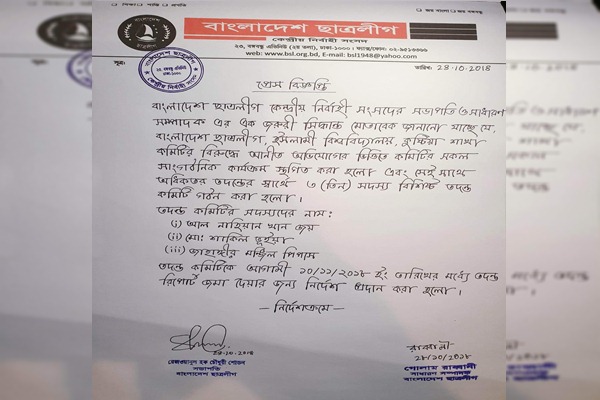 ॥ শিক্ষা ॥ শান্তি ॥ প্রগতি
॥ জয় বাংলা ॥ জয় বঙ্গবন্ধু
বাংলাদেশ ছাত্রলীগ
কেন্দ্রীয় নির্বাহী সংসদ
২৩, বঙ্গবন্ধু এভিনিউ (২য় তলা), ঢাকা-১০০০। ফ্যাক্স/ফোন: ০২-৯৫১৬৩৬৬
web: www.bsl.org.bd, E-mail: bsl1948@yahoo.com
সূত্র:
তারিখ: 28.10.2018
প্রেস বিজ্ঞপ্তি
বাংলাদেশ ছাত্রলীগ কেন্দ্রীয় নির্বাহী সংসদের সভাপতি ও সাধারণ
সম্পাদক এর এক জরুরী সিদ্ধান্ত মোতাবেক জানানো যাচ্ছে যে,
বাংলাদেশ ছাত্রলীগ, ইসলামী বিশ্ববিদ্যালয়, কুষ্টিয়া শাখা
কমিটির বিরুদ্ধে আনীত অভিযোগের ভিত্তিতে কমিটির সকল
সাংগঠনিক কার্যক্রম স্থগিত করা হলো এবং সেই সাথে
অধিকতর তদন্তের স্বার্থে ৩ (তিন) সদস্য বিশিষ্ট তদন্ত
কমিটি গঠন করা হলো।
তদন্ত কমিটির সদস্যদের নাম:
(i) আল নাহিয়ান খান জয়
(ii) মো: শাকিল ভূইয়া
(iii) জাহাঙ্গীর মঞ্জিল পিপাস
তদন্ত কমিটিকে আগামী ১০/১১/২০১৮ ইং তারিখের মধ্যে তদন্ত
রিপোর্ট জমা দেয়ার জন্য নির্দেশ প্রদান করা হলো।
— নির্দেশক্রমে —
28.10.2018
রেজওয়ানুল হক চৌধুরী শোভন
সভাপতি
বাংলাদেশ ছাত্রলীগ
রাব্বানী
২৮/১০/২০১৮
গোলাম রাব্বানী
সাধারণ সম্পাদক
বাংলাদেশ ছাত্রলীগ